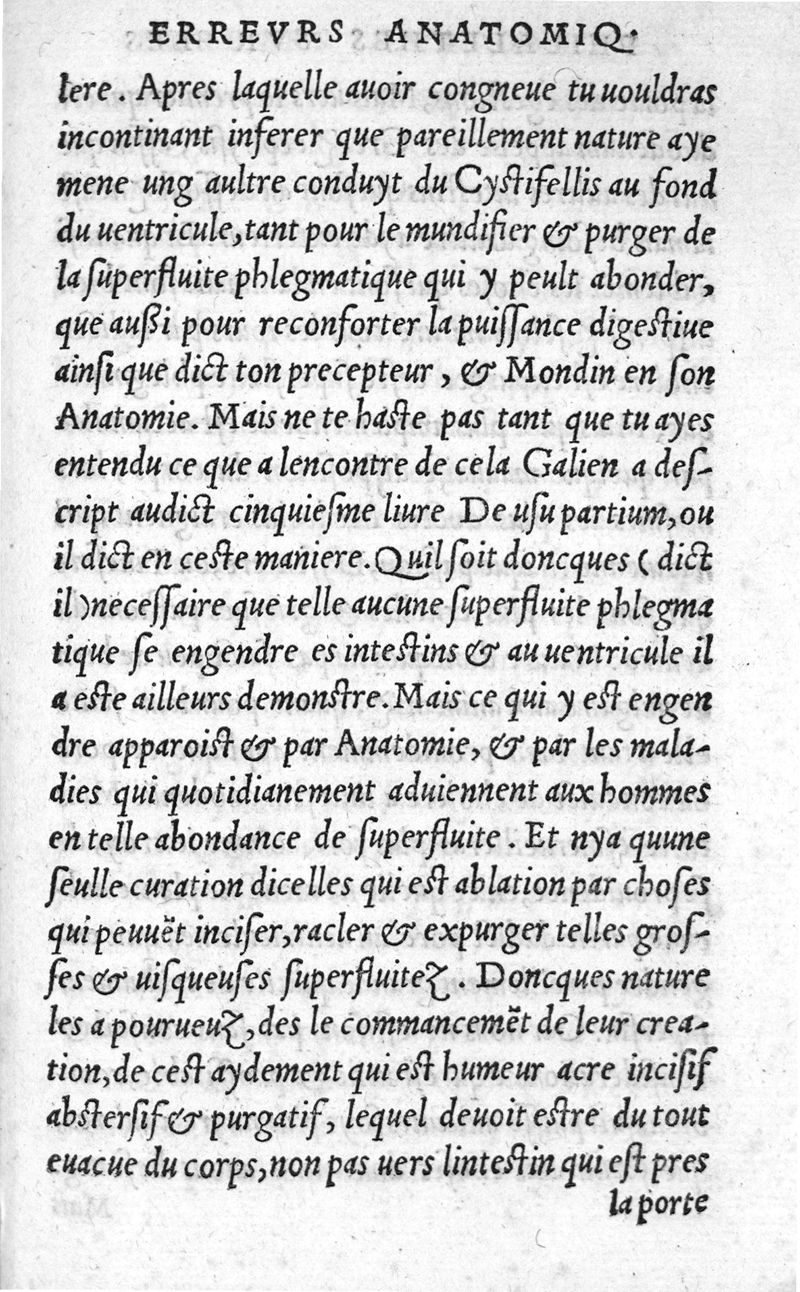 ERREVRS ANATOMIQ.
lere. Apres laquelle auoir congneue tu uouldras
incontinant inferer que pareillement nature aye
mene ung aultre conduyt du Cystifellis au fond
du uentricule, tant pour le mundifier & purger de
la ſuperfluite phlegmatique qui y peult abonder,
que außi pour reconforter la puiſſance digestiue
ainſi que dict ton precepteur, & Mondin en ſon
Anatomie. Mais ne te haste pas tant que tu ayes
entendu ce que a lencontre de cela Galien a deſ-
cript audict cinquieſme liure De uſu partium, ou
il dict en ceste maniere. Quil ſoit doncques ( dict
il ) neceſſaire que telle aucune ſuperfluite phlegma
tique ſe engendre es intestins & au uentricule il
a este ailleurs demonstre. Mais ce qui y est engen
dre apparoist & par Anatomie, & par les mala-
dies qui quotidianement aduiennent aux hommes
en telle abondance de ſuperfluite. Et nya quune
ſeulle curation dicelles qui est ablation par choſes
qui peuuēt inciſer, racler & expurger telles groſ-
ſes & uiſqueuſes ſuperfluitez. Doncques nature
les a pourueuz, des le commancemēt de leur crea-
tion, de cest aydement qui est humeur acre inciſif
abſterſif & purgatif, lequel deuoit estre du tout
euacue du corps, non pas uers lintestin qui eſt pres
la porte